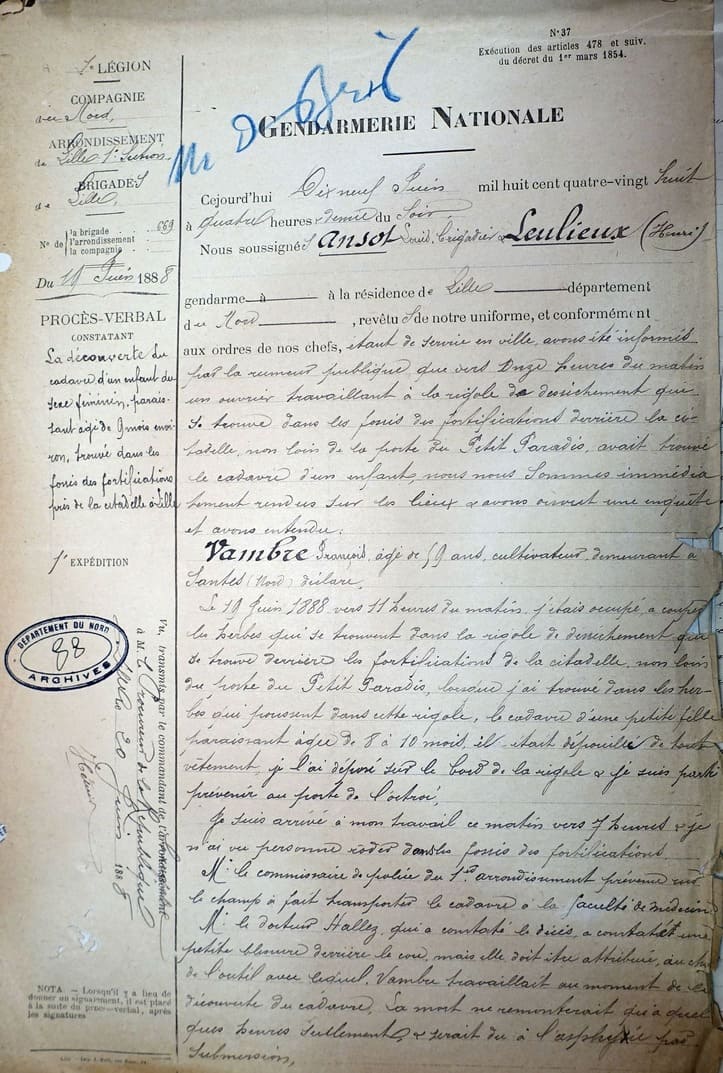 N° 37
Exécution des articles 478 et suiv.
du décret du 1er mars 1854.
GENDARMERIE NATIONALE
7e LÉGION
COMPAGNIE
du Nord,
ARRONDISSEMENT
de Lille 1e Section
BRIGADES
de Lille,
N° de la brigade 669
l'arrondissement
la compagnie
Du 19 Juin 1888
PROCÈS-VERBAL
CONSTATANT
La découverte du
cadavre d'un enfant du
sexe féminin, parais-
sant âgé de 9 mois envi-
ron, trouvé dans les
fossés des fortifications
près de la citadelle à Lille
1e EXPÉDITION
DÉPARTEMENT DU NORD
88
ARCHIVES
Vu, transmis par le commandant de l'arrondissement
à M. le Procureur de la République
Lille 20 Juin 1888
NOTA. — Lorsqu'il y a lieu de
donner un signalement, il est placé
à la suite du procès-verbal, après
les signatures
Cejourd'hui Dix neuf Juin mil huit cent quatre-vingt huit
à quatre heures & demie du Soir
Nous soussignés Ansot Louis, Brigadier & Leulieux (Henri)
gendarme à à la résidence de Lille département
du Nord, revêtus de notre uniforme, et conformément
aux ordres de nos chefs, étant de service en ville, avons été informés
par la rumeur publique que vers Onze heures du matin
un ouvrier travaillant à la rigole de dessèchement qui
se trouve dans les fossés des fortifications derrière la ci-
tadelle, non loin de la porte du Petit Paradis, avait trouvé
le cadavre d'un enfant, nous nous Sommes immédia
tement rendus sur les lieux & avons ouvert une enquête
et avons entendu:
Vambre François, âgé de 59 ans, cultivateur, demeurant à
Santes (Nord) déclare,
Le 19 Juin 1888 vers 11 heures du matin, j'étais occupé à couper
les herbes qui se trouvent dans la rigole de dessèchement qui
se trouve derrière les fortifications de la citadelle, non loin
du poste du Petit Paradis, lorsque j'ai trouvé dans les her-
bes qui poussent dans cette rigole, le cadavre d'une petite fille
paraissant âgée de 8 à 10 mois, il était dépouillé de tout
vêtement, je l'ai déposé sur le bord de la rigole & je suis parti
prévenir au poste de l'octroi,
Je suis arrivé à mon travail ce matin vers 7 heures & je
n'ai vu personne rôder dans les fossés des fortifications
Mr le commissaire de police du 1er arrondissement prévenu sur
le champ à fait transporter le cadavre à la faculté de médecine
Mr le docteur Hallez, qui a constaté le décès, a constaté une
petite blessure derrière le cou, mais elle doit être attribuée, au
de l'outil avec lequel, Vambre travaillait au moment de la
découverte du cadavre, La mort ne remonterait qu'à quel
ques heures seulement, & serait du à l'asphyxie par
submersion,